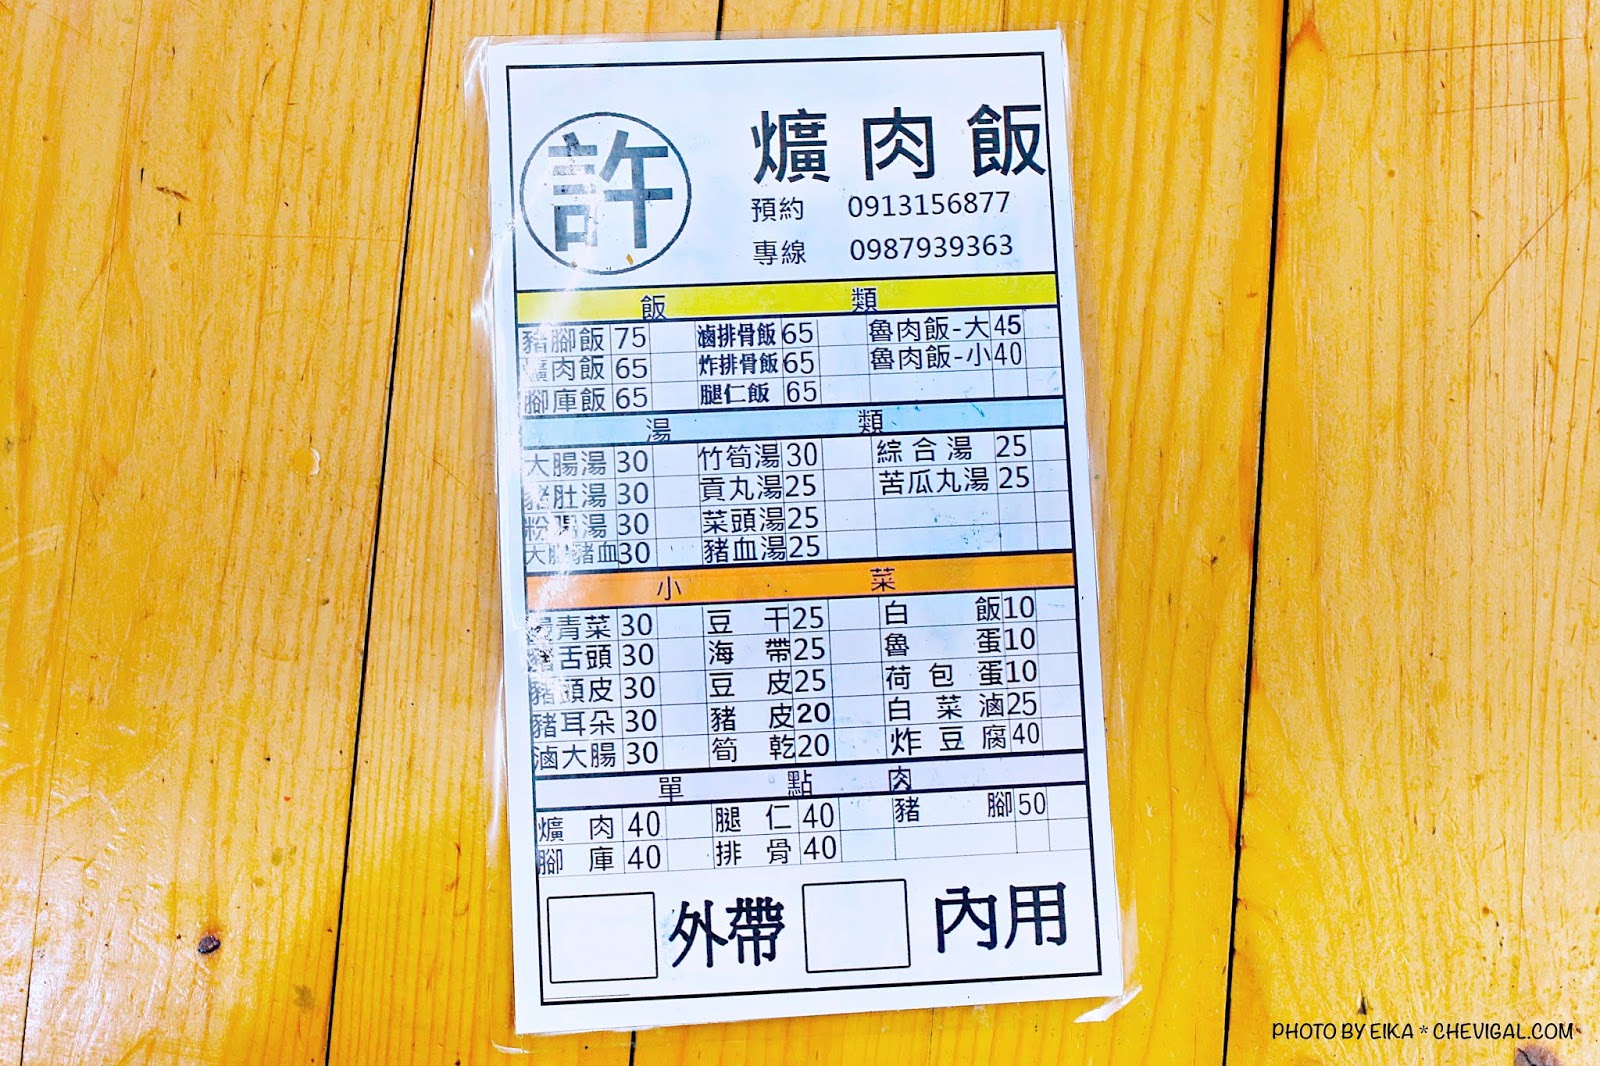 許
爌肉飯
預約 0913156877
專線 0987939363
飯類
豬腳飯 75 滷排骨飯 65 魯肉飯-大 45
爌肉飯 65 炸排骨飯 65 魯肉飯-小 40
腳庫飯 65 腿仁飯 65
湯類
大腸湯 30 竹筍湯 30 綜合湯 25
豬肚湯 30 貢丸湯 25 苦瓜丸湯 25
粉腸湯 30 菜頭湯 25
大腸豬血 30 豬血湯 25
小菜
青菜 30 豆干 25 白飯 10
豬舌頭 30 海帶 25 魯蛋 10
豬頭皮 30 豆皮 25 荷包蛋 10
豬耳朵 30 豬皮 20 白菜滷 25
滷大腸 30 筍乾 20 炸豆腐 40
單點肉
爌肉 40 腿仁 40 豬腳 50
腳庫 40 排骨 40
外帶 內用
PHOTO BY EIKA * CHEVIGAL.COM